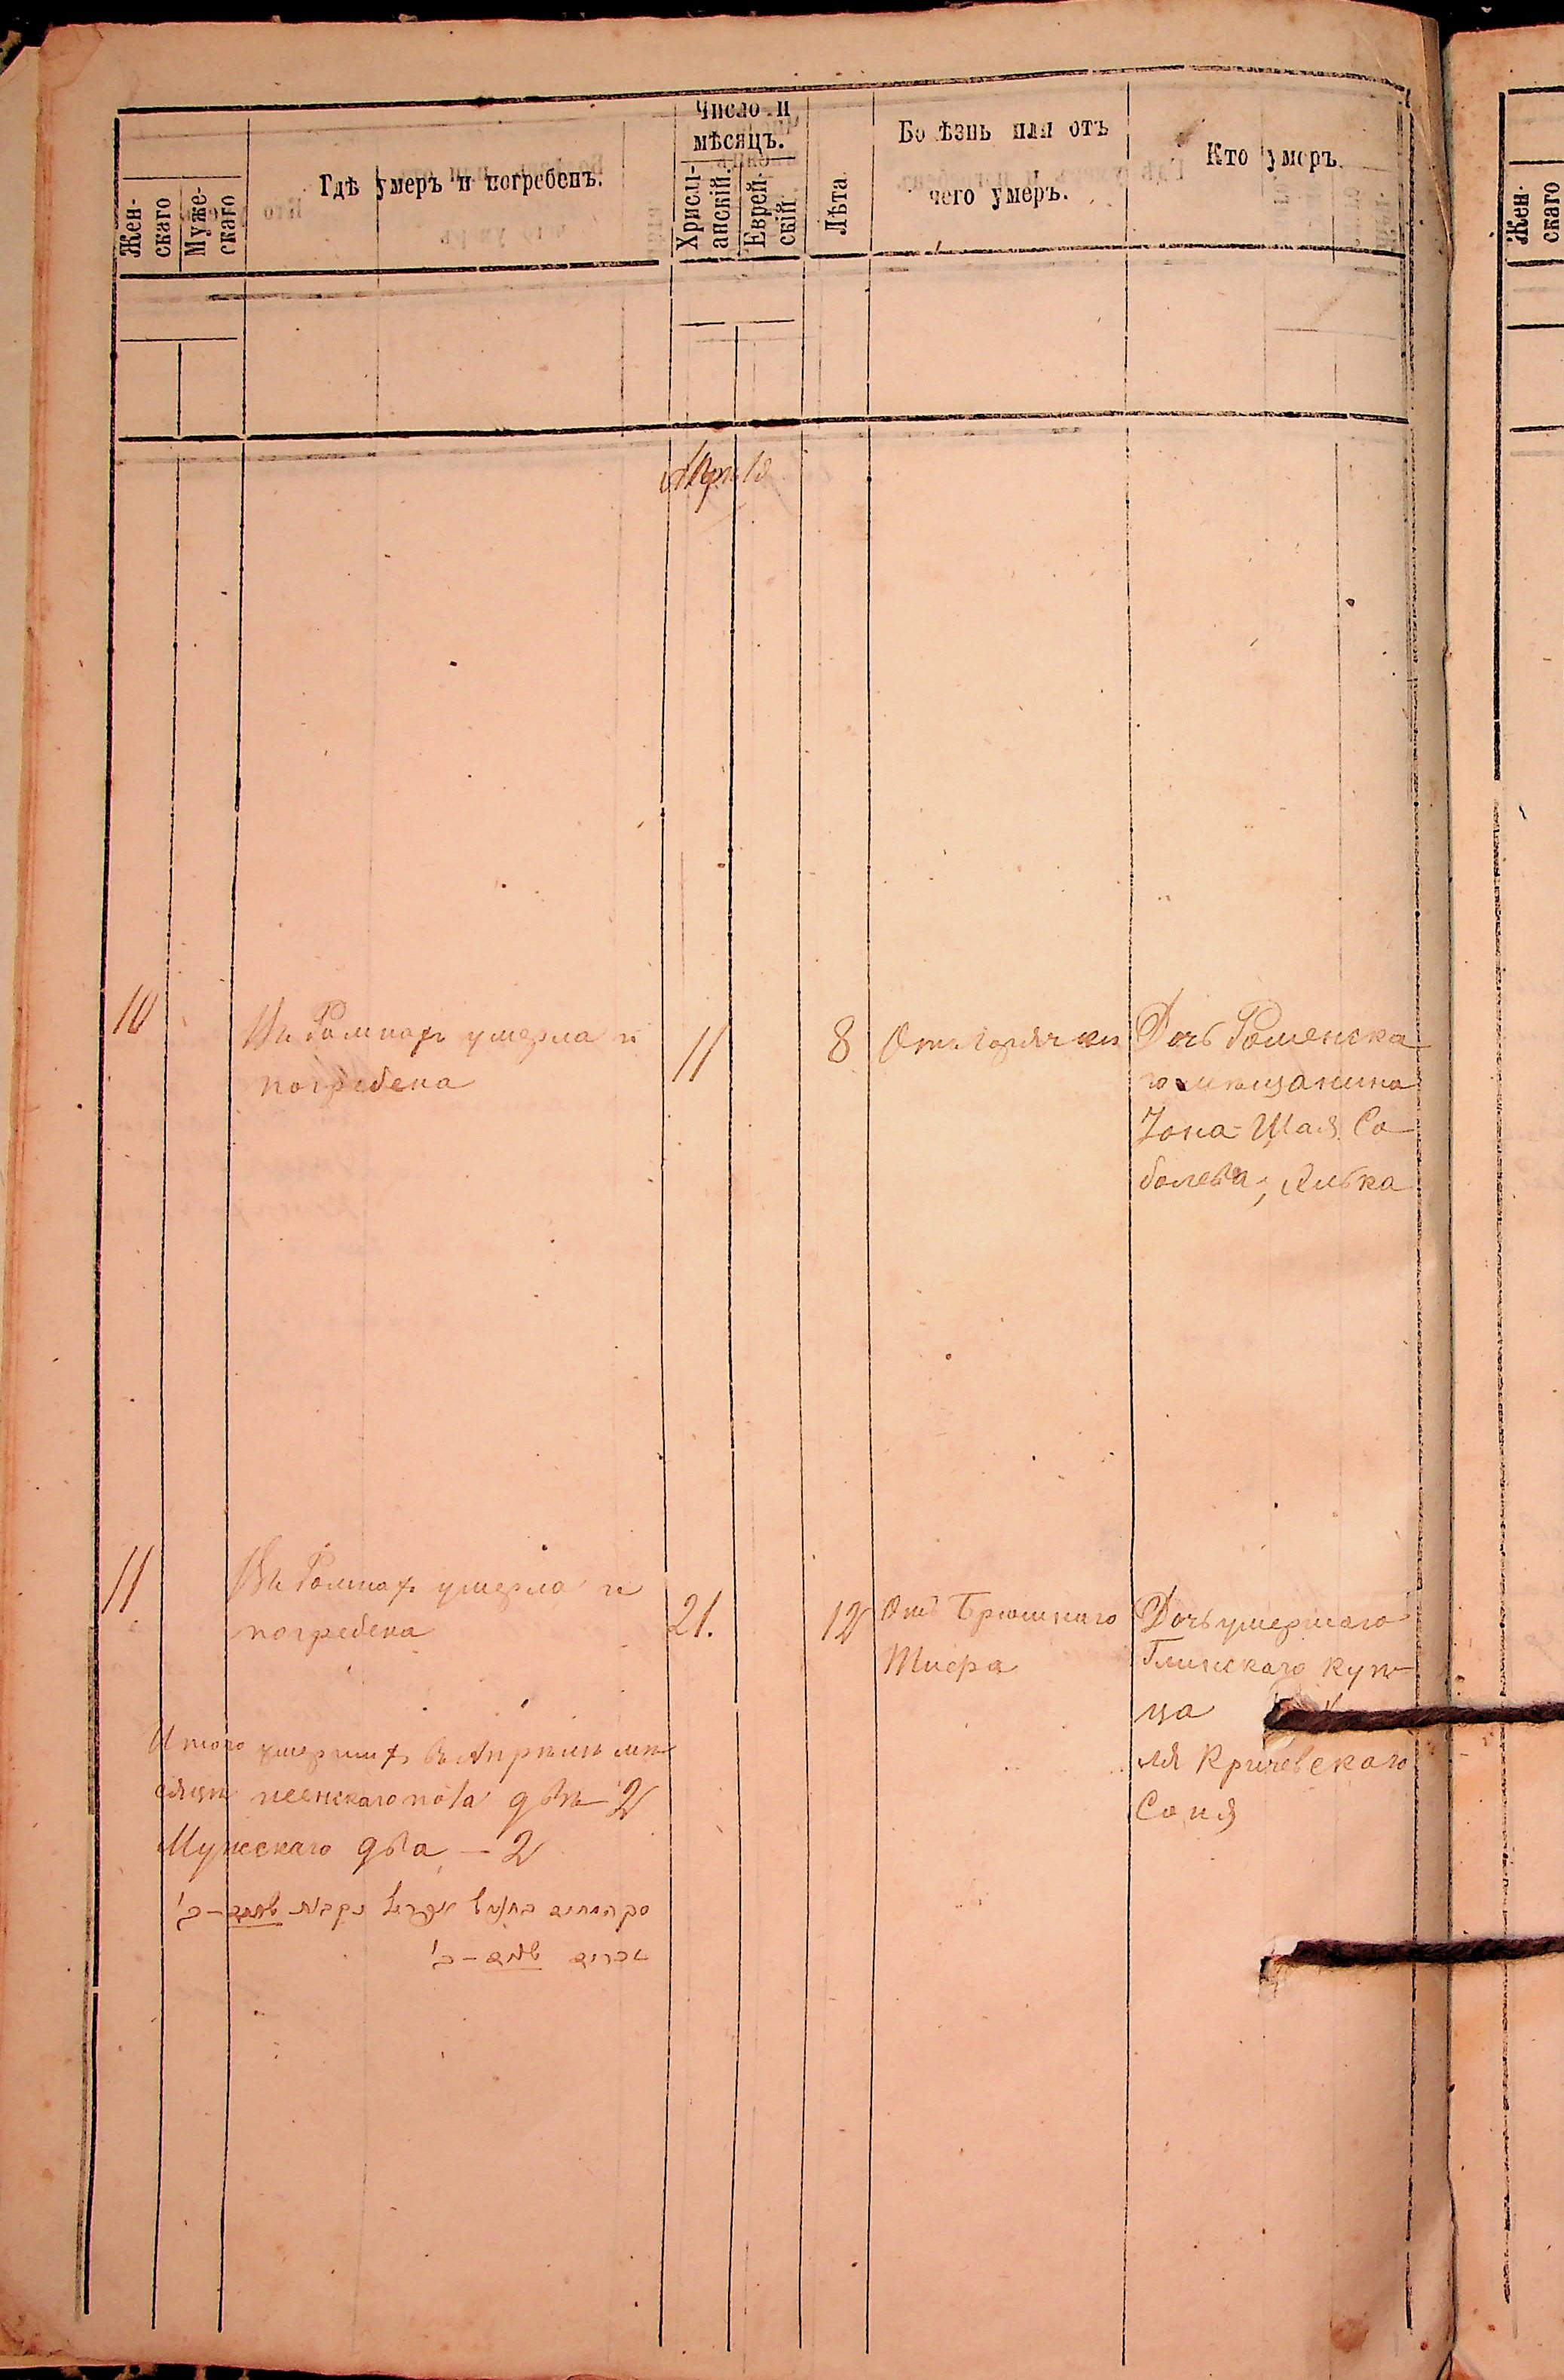 Число и
мѣсяцъ.
Жен-
скаго
Муже-
скаго
Гдѣ умеръ и погребенъ.
Христі-
анскій.
Еврей-
скій
Лѣта
Болѣзнь или отъ
чего умеръ.
Кто умеръ.
Жен-
скаго
Апрѣль
10
Въ Ромнахъ умерла и
погребена
11
8
Отъ Горячки
Дочь Роменска
го мѣщанина
Іона-Шая Со
болева, Ривка
11
Въ Ромнахъ умерла и
погребена
21.
12
Отъ Брюшнаго
Тифа
Дочь умершаго
Глинскаго Куп
ца
ля Кричевскаго
Соня
Итого умершихъ въ Апрѣлѣ мѣ
сяцѣ женскаго пола двѣ 2
Мужескаго два - 2
נקבות שתים - ב'
זכרים שנים - ב'